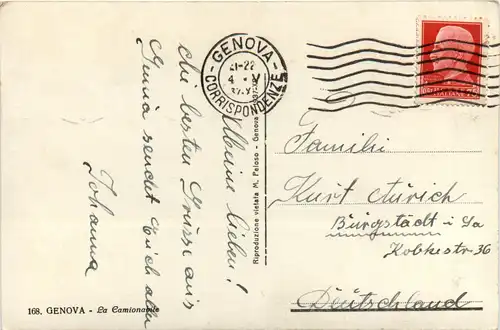 Meine Lieben!
Die besten Grüsse aus
Genua sendet Euch allen
Johanna
168. GENOVA - La Camionale
Riproduzione vietata M. Peloso - Genova
GENOVA
21-22
4 · V
CORRISPONDENZE
POSTE ITALIANE
Familie
Kurt Aurich
Burgstädt i Sa
Kobkestr 36
Deutschland